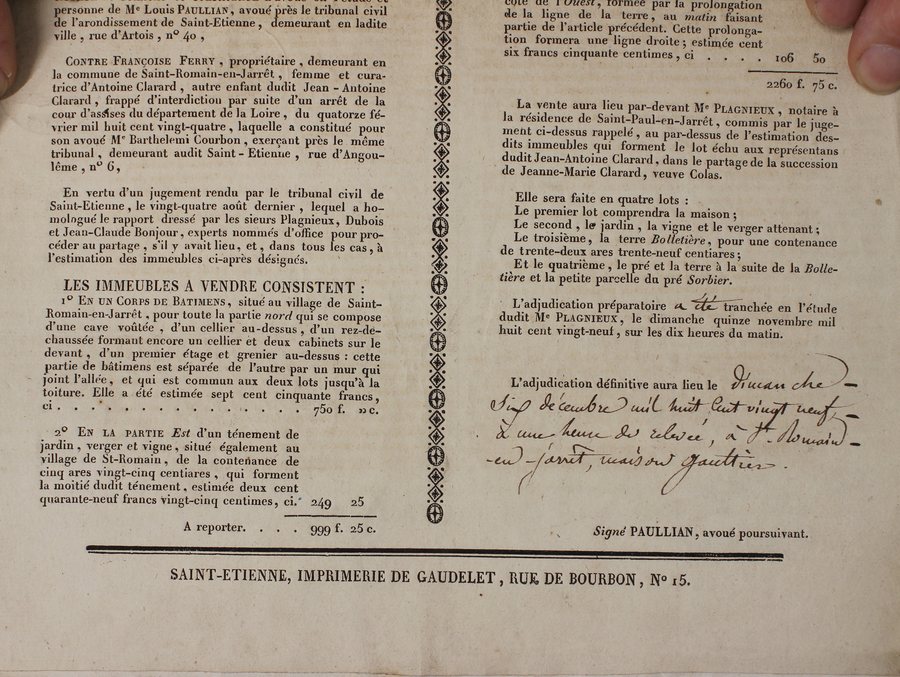 personne de Me Louis PAULLIAN, avoué près le tribunal civil
de l'arondissement de Saint-Etienne, demeurant en ladite
ville, rue d'Artois, no 40,
CONTRE FRANÇOISE FERRY, propriétaire, demeurant en
la commune de Saint-Romain-en-Jarrêt, femme et cura-
trice d'Antoine Clarard, autre enfant dudit Jean-Antoine
Clarard, frappé d'interdiction par suite d'un arrêt de la
cour d'assises du département de la Loire, du quatorze fé-
vrier mil huit cent vingt-quatre, laquelle a constitué pour
son avoué Me Barthelemi Courbon, exerçant près le même
tribunal, demeurant audit Saint-Etienne, rue d'Angou-
lême, no 6,
En vertu d'un jugement rendu par le tribunal civil de
Saint-Etienne, le vingt-quatre août dernier, lequel a ho-
mologué le rapport dressé par les sieurs Plagnieux, Dubois
et Jean-Claude Bonjour, experts nommés d'office pour pro-
céder au partage, s'il y avait lieu, et, dans tous les cas, à
l'estimation des immeubles ci-après désignés.
LES IMMEUBLES A VENDRE CONSISTENT :
1o EN UN CORPS DE BATIMENS, situé au village de Saint-
Romain-en-Jarrêt, pour toute la partie nord qui se compose
d'une cave voûtée, d'un cellier au-dessus, d'un rez-de-
chaussée formant encore un cellier et deux cabinets sur le
devant, d'un premier étage et grenier au-dessus : cette
partie de bâtimens est séparée de l'autre par un mur qui
joint l'allée, et qui est commun aux deux lots jusqu'à la
toiture. Elle a été estimée sept cent cinquante francs,
ci . . . . . . . . . . . . . . . . 750 f. » c.
2o EN LA PARTIE Est d'un ténement de
jardin, verger et vigne, situé également au
village de St-Romain, de la contenance de
cinq ares vingt-cinq centiares, qui forment
la moitié dudit ténement, estimée deux cent
quarante-neuf francs vingt-cinq centimes, ci. 249 25
A reporter. . . . 999 f. 25 c.
côté de l'Ouest, formée par la prolongation
de la ligne de la terre, au matin faisant
partie de l'article précédent. Cette prolonga-
tion formera une ligne droite ; estimée cent
six francs cinquante centimes, ci . . . . 106 50
2260 f. 75 c.
La vente aura lieu par-devant Me PLAGNIEUX, notaire à
la résidence de Saint-Paul-en-Jarrêt, commis par le juge-
ment ci-dessus rappelé, au par-dessus de l'estimation des-
dits immeubles qui forment le lot échu aux représentans
dudit Jean-Antoine Clarard, dans le partage de la succession
de Jeanne-Marie Clarard, veuve Colas.
Elle sera faite en quatre lots :
Le premier lot comprendra la maison ;
Le second, le jardin, la vigne et le verger attenant ;
Le troisième, la terre Bolletière, pour une contenance
de trente-deux ares trente-neuf centiares ;
Et le quatrième, le pré et la terre à la suite de la Bolle-
tière et la petite parcelle du pré Sorbier.
L'adjudication préparatoire a été tranchée en l'étude
dudit Me PLAGNIEUX, le dimanche quinze novembre mil
huit cent vingt-neuf, sur les dix heures du matin.
L'adjudication définitive aura lieu le dimanche
Six décembre mil huit Cent vingt neuf,
à une heure de relevée, à St. Romain-
en-Jarrêt, maison Gauttier.
Signé PAULLIAN, avoué poursuivant.
SAINT-ETIENNE, IMPRIMERIE DE GAUDELET, RUE DE BOURBON, No 15.